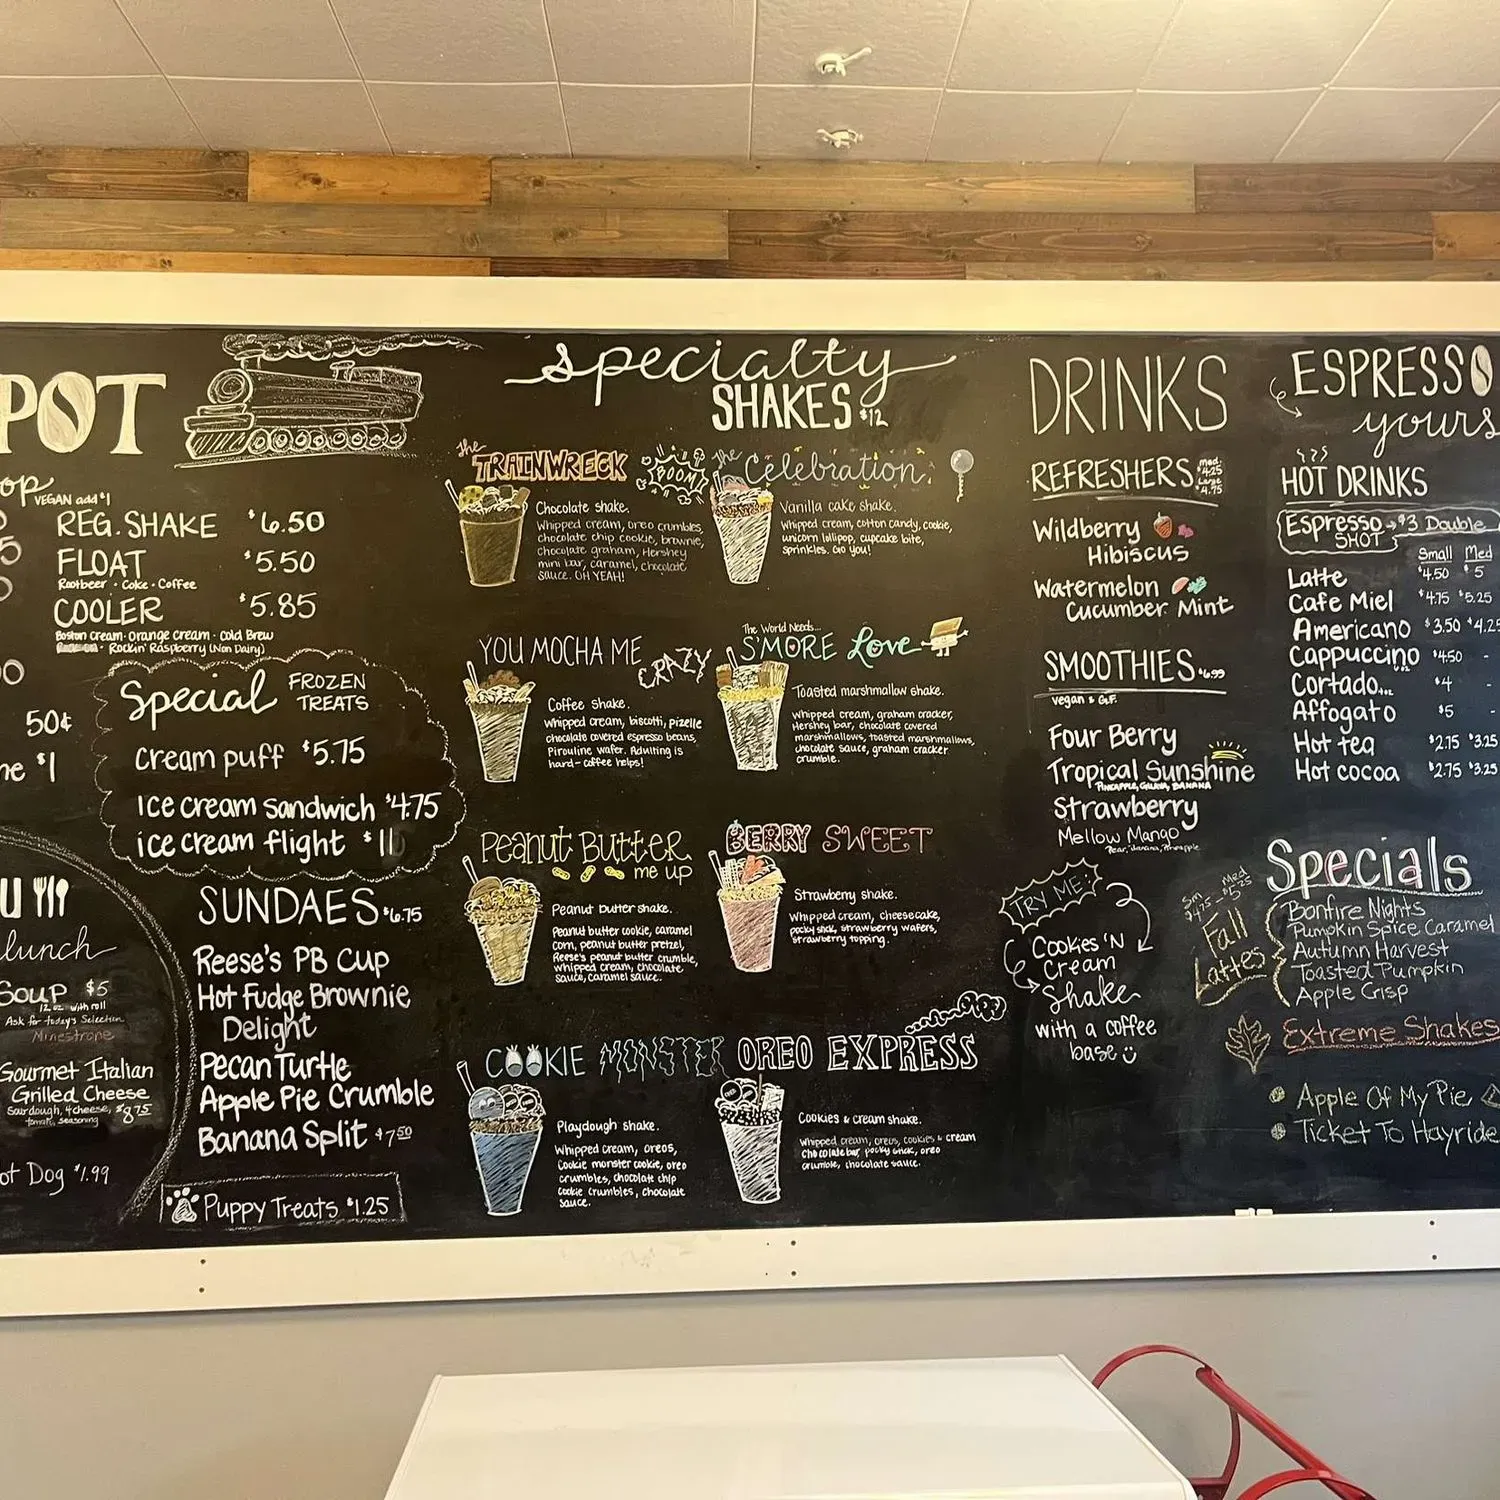 POT
op
VEGAN add $1
REG. SHAKE $6.50
FLOAT $5.50
Rootbeer • Coke • Coffee
COOLER $5.85
Boston Cream • Orange Cream • Cold Brew
Rockin' Raspberry (Non Dairy)
50¢
ne $1
Special FROZEN
TREATS
cream puff $5.75
Ice cream sandwich $4.75
ice cream flight $11
U
lunch
SOUP $5
12 oz with roll
Ask for today's Selection
Minestrone
Gourmet Italian
Grilled Cheese
Sourdough, 4 cheese, $8.75
tomato, seasoning
ot Dog $1.99
SUNDAES $6.75
Reese's PB Cup
Hot Fudge Brownie
Delight
Pecan Turtle
Apple Pie Crumble
Banana Split $7.50
Puppy Treats $1.25
Specialty
SHAKES $12
The
TRAINWRECK
BOOM!
Chocolate shake.
Whipped cream, oreo crumbles,
chocolate chip cookie, brownie,
chocolate graham, Hershey
mini bar, caramel, chocolate
sauce. OH YEAH!
The Celebration
Vanilla cake shake.
Whipped cream, cotton candy, cookie,
unicorn lollipop, cupcake bite,
sprinkles. Go you!
YOU MOCHA ME
CRAZY
Coffee shake.
Whipped cream, biscotti, pizelle
chocolate covered espresso beans,
Pirouline wafer. Adulting is
hard-coffee helps!
The World Needs...
S'MORE Love
Toasted marshmallow shake.
Whipped cream, graham cracker,
Hershey bar, chocolate covered
marshmallows, toasted marshmallows,
chocolate sauce, graham cracker
crumble.
Peanut Butter
me up
Peanut butter shake.
Peanut butter cookie, caramel
corn, peanut butter pretzel,
Reese's peanut butter crumble,
whipped cream, chocolate
sauce, caramel sauce.
BERRY SWEET
Strawberry shake.
Whipped cream, cheesecake,
pocky stick, strawberry wafers,
strawberry topping.
COOKIE MONSTER
Playdough shake.
Whipped cream, oreos,
Cookie monster cookie, oreo
crumbles, chocolate chip
cookie crumbles, chocolate
sauce.
OREO EXPRESS
Cookies & cream shake.
Whipped cream, oreos, cookies & cream
Chocolate bar, pocky stick, oreo
crumble, chocolate sauce.
DRINKS
REFRESHERS
med.
$4.25
Large
$4.75
Wildberry
Hibiscus
Watermelon
Cucumber Mint
SMOOTHIES $6.99
vegan & G.F.
Four Berry
Tropical Sunshine
PINEAPPLE, GUAVA, BANANA
Strawberry
Mellow Mango
Pear, Banana, Pineapple
TRY ME:
Cookies 'N
Cream
Shake
with a coffee
base
ESPRESSO
yours
HOT DRINKS
Espresso → $3 Double
SHOT
Small Med
Latte $4.50 $5
Cafe Miel $4.75 $5.25
Americano $3.50 $4.25
Cappuccino $4.50 -
Cortado... $4 -
Affogato $5 -
Hot tea $2.75 $3.25
Hot cocoa $2.75 $3.25
Specials
Sm Med
$4.75 - $5.25
Fall
Lattes
Bonfire Nights
Pumpkin Spice Caramel
Autumn Harvest
Toasted Pumpkin
Apple Crisp
Extreme Shakes
Apple Of My Pie
Ticket To Hayride